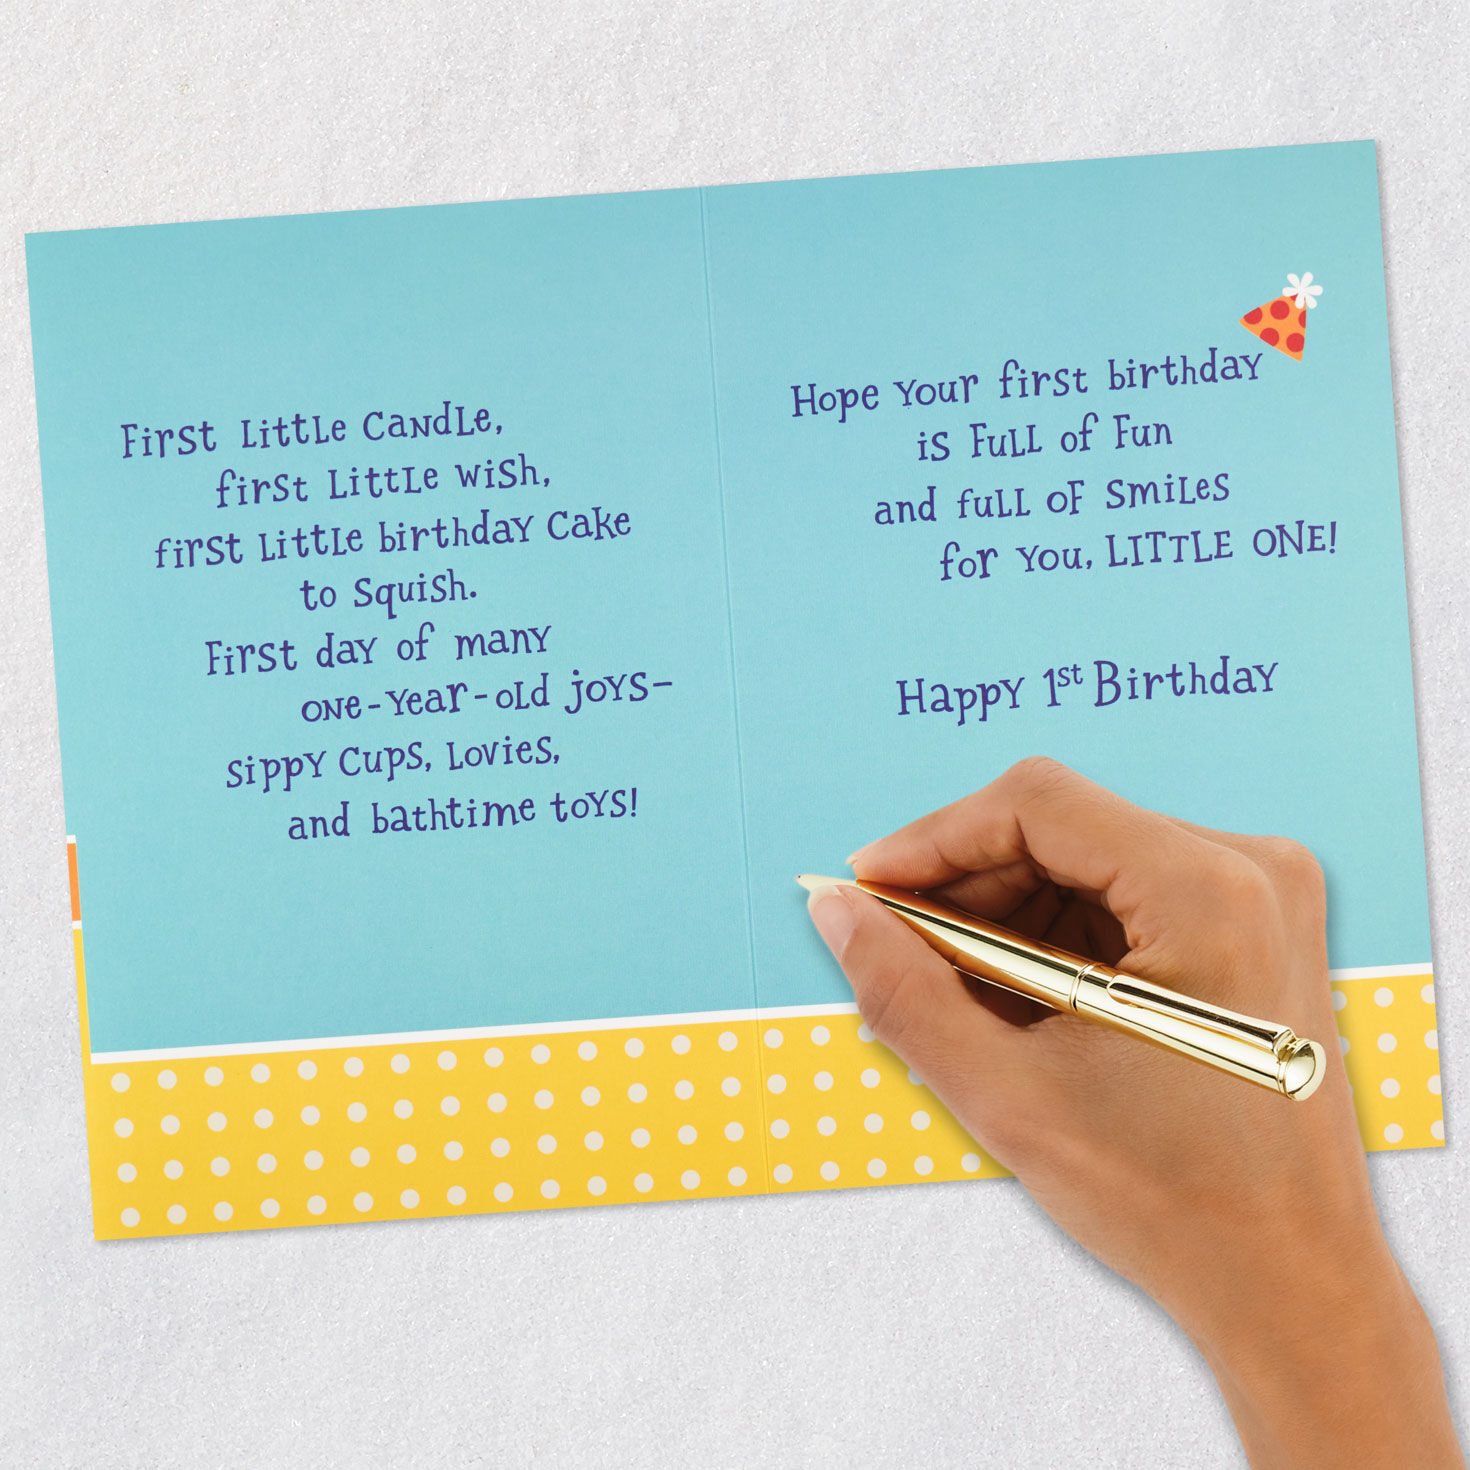 First Little Candle,
first Little wish,
first Little birthday Cake
to Squish.
First day of many
one-year-old joys-
sippy Cups, Lovies,
and bathtime toys!
Hope your first birthday
is Full of Fun
and full of smiles
for you, LITTLE ONE!
Happy 1st Birthday